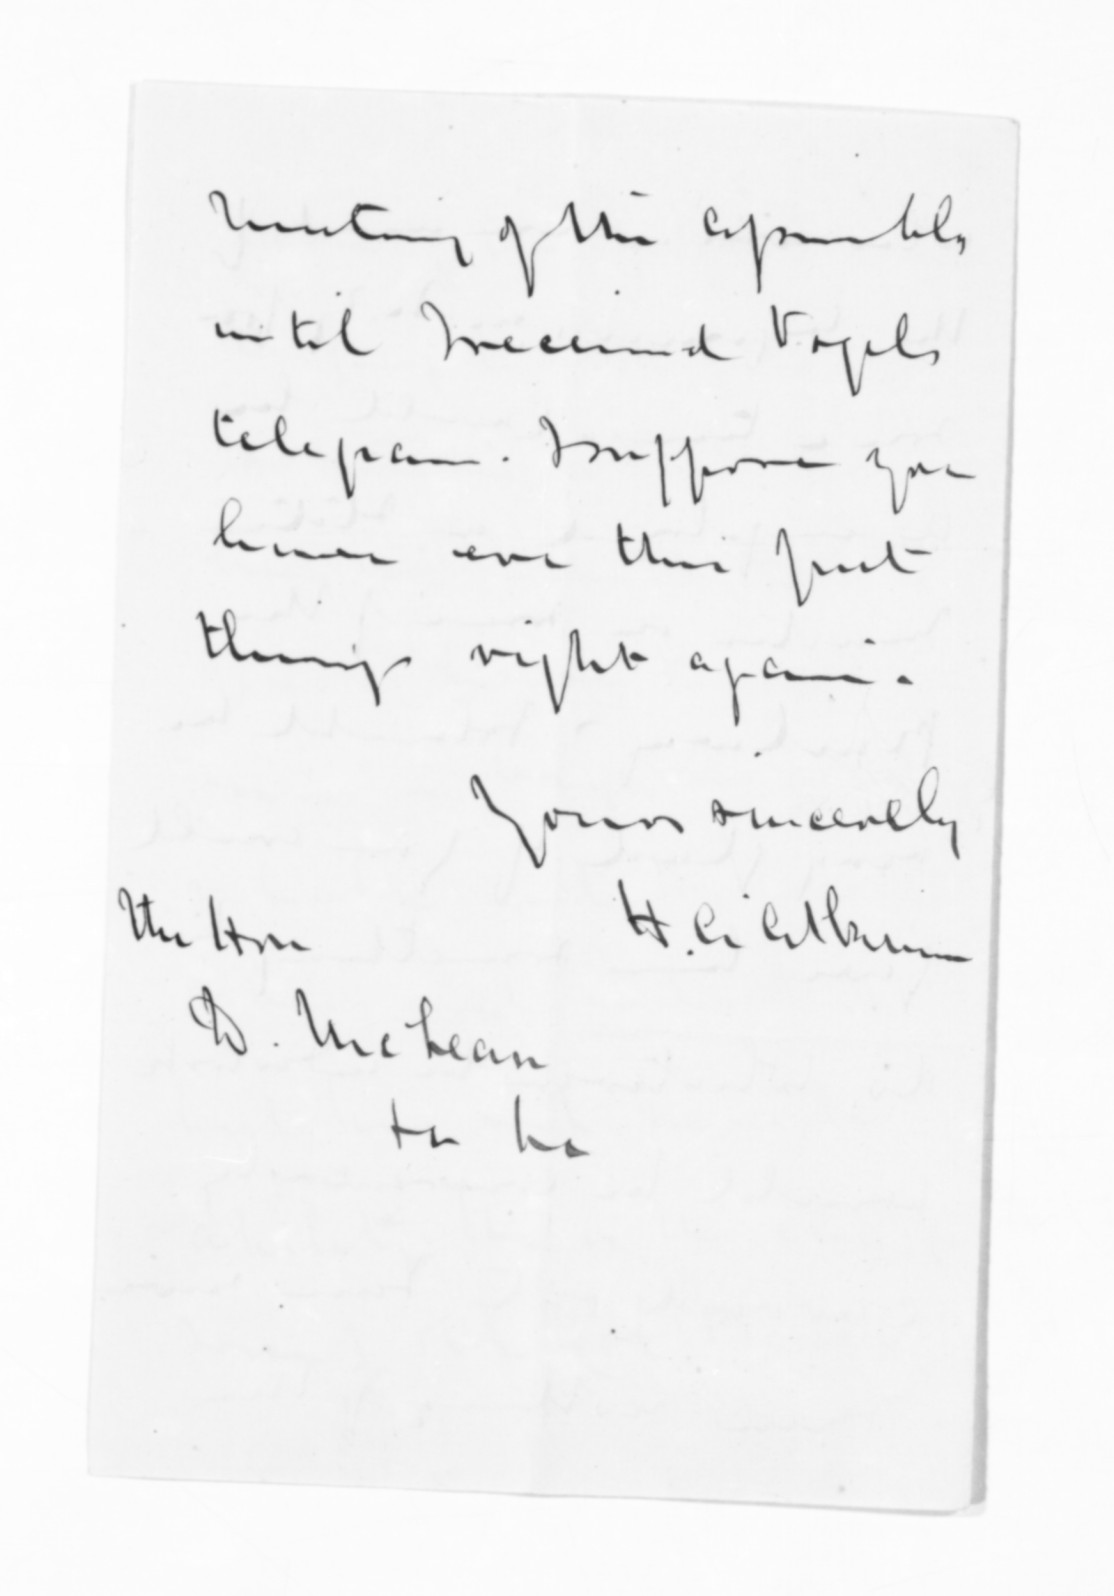 meeting of the assembly
until I received Vogels
telegram. I suppose you
have ere this put
things right again.
Yours sincerely
The Hon
H. A. Atkinson
D. McLean